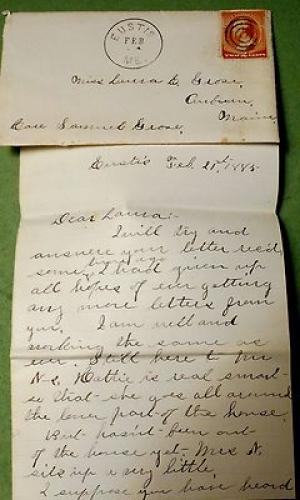 EUSTIS
FEB
ME.
Miss Laura E. Grose,
Auburn,
Maine,
Care Samuel Grose,
Eustis Feb. 21st, 1885
Dear Laura:-
I will try and
answere your letter rec'd
some time ago
I had given up
all hopes of ever getting
any more letters from
you. I am well and
working the same as
ever. Still here to Mr
N-s. Hattie is real smart-
so that she goes all around
the lower part of the house.
But hasn't been out
of the house yet. Mrs N.
sits up very little.
I suppose you have heard